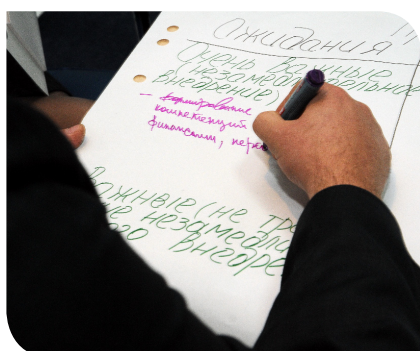 Ожидания
Очень важные
(незамедлительное
внедрение)
- формирование
компетенций
финансами, пер
Важные (не тр
ие незамедли
ого внедре